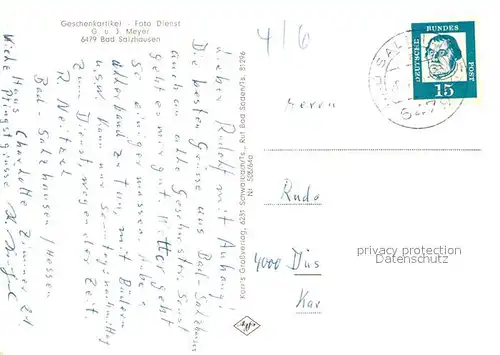 Geschenkartikel - Foto Dienst
G. u. J. Meyer
6479 Bad Salzhausen
4/6
DEUTSCHE
BUNDES
POST
15
Lieber Rudolf mit Anhang!
Die besten Grüsse aus Bad-Salzhausen
auch an alle Geschwister. Sonst
geht es mir gut. Wetter geht
so einigermassen. Habe
allerhand zu tun, mit Bädern
u.s.w. Kann nur Sonntagsnachmittag
zum Dienst, wegen der Zeit.
R. Neitzel
Bad-Salzhausen/Hessen
Haus Charlotte Zimmer 21
Viele Pfingstgrüsse
Karr's Großverlag, 6231 Schwalbach/Ts., Ruf Bad Soden/Ts. 51296
Nr. 508/640
Herrn
Rudo
4000 Düs
Kar
privacy protection
Datenschutz